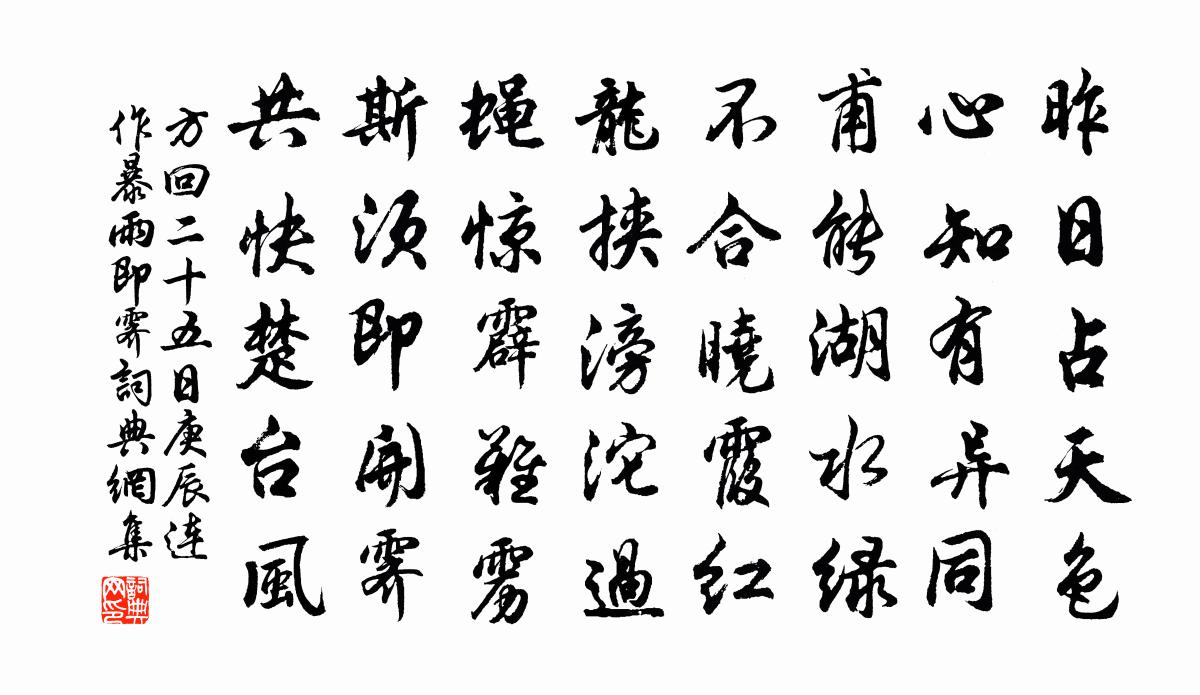 昨日占天色
心知有异同
甫能湖水绿
不合曉霞红
龍挟滂沱過
蝇惊霹難雳
斯须即開霽
共快楚台風
方回二十五日庚辰连
作暴雨即霽詞典網集
詞典
网印